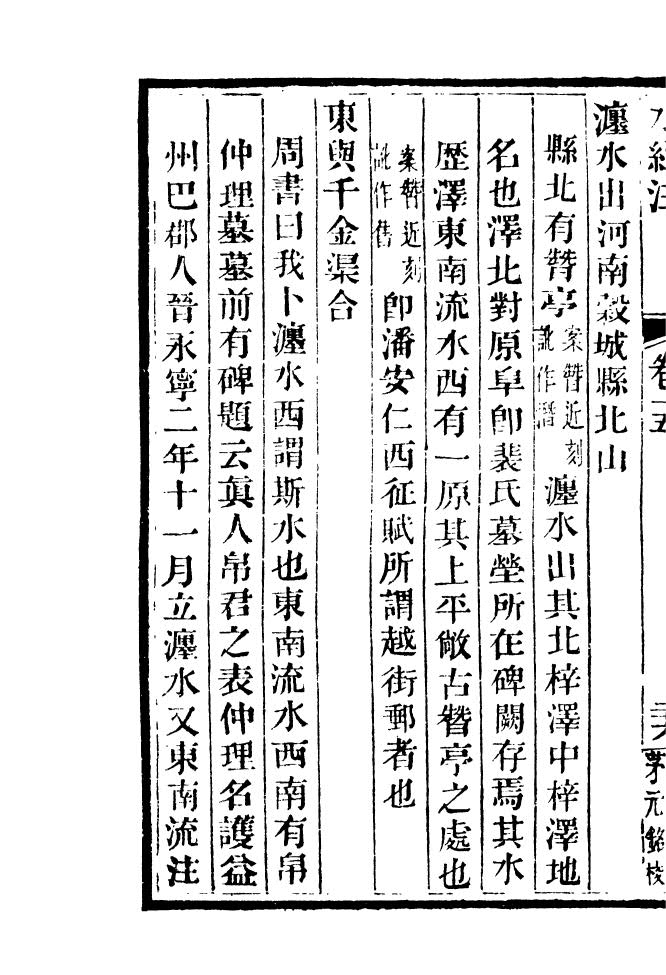 水經注 卷十五 茅元銘校
瀍水出河南穀城縣北山
縣北有朁亭案朁近刻訛作潛瀍水出其北梓澤中梓澤地
名也澤北對原阜卽裴氏墓塋所在碑闕存焉其水
歷澤東南流水西有一原其上平敞古朁亭之處也
案朁近刻訛作舊卽潘安仁西征賦所謂越街郵者也
東與千金渠合
周書曰我卜瀍水西謂斯水也東南流水西南有帛
仲理墓墓前有碑題云眞人帛君之表仲理名護益
州巴郡人晉永寧二年十一月立瀍水又東南流注